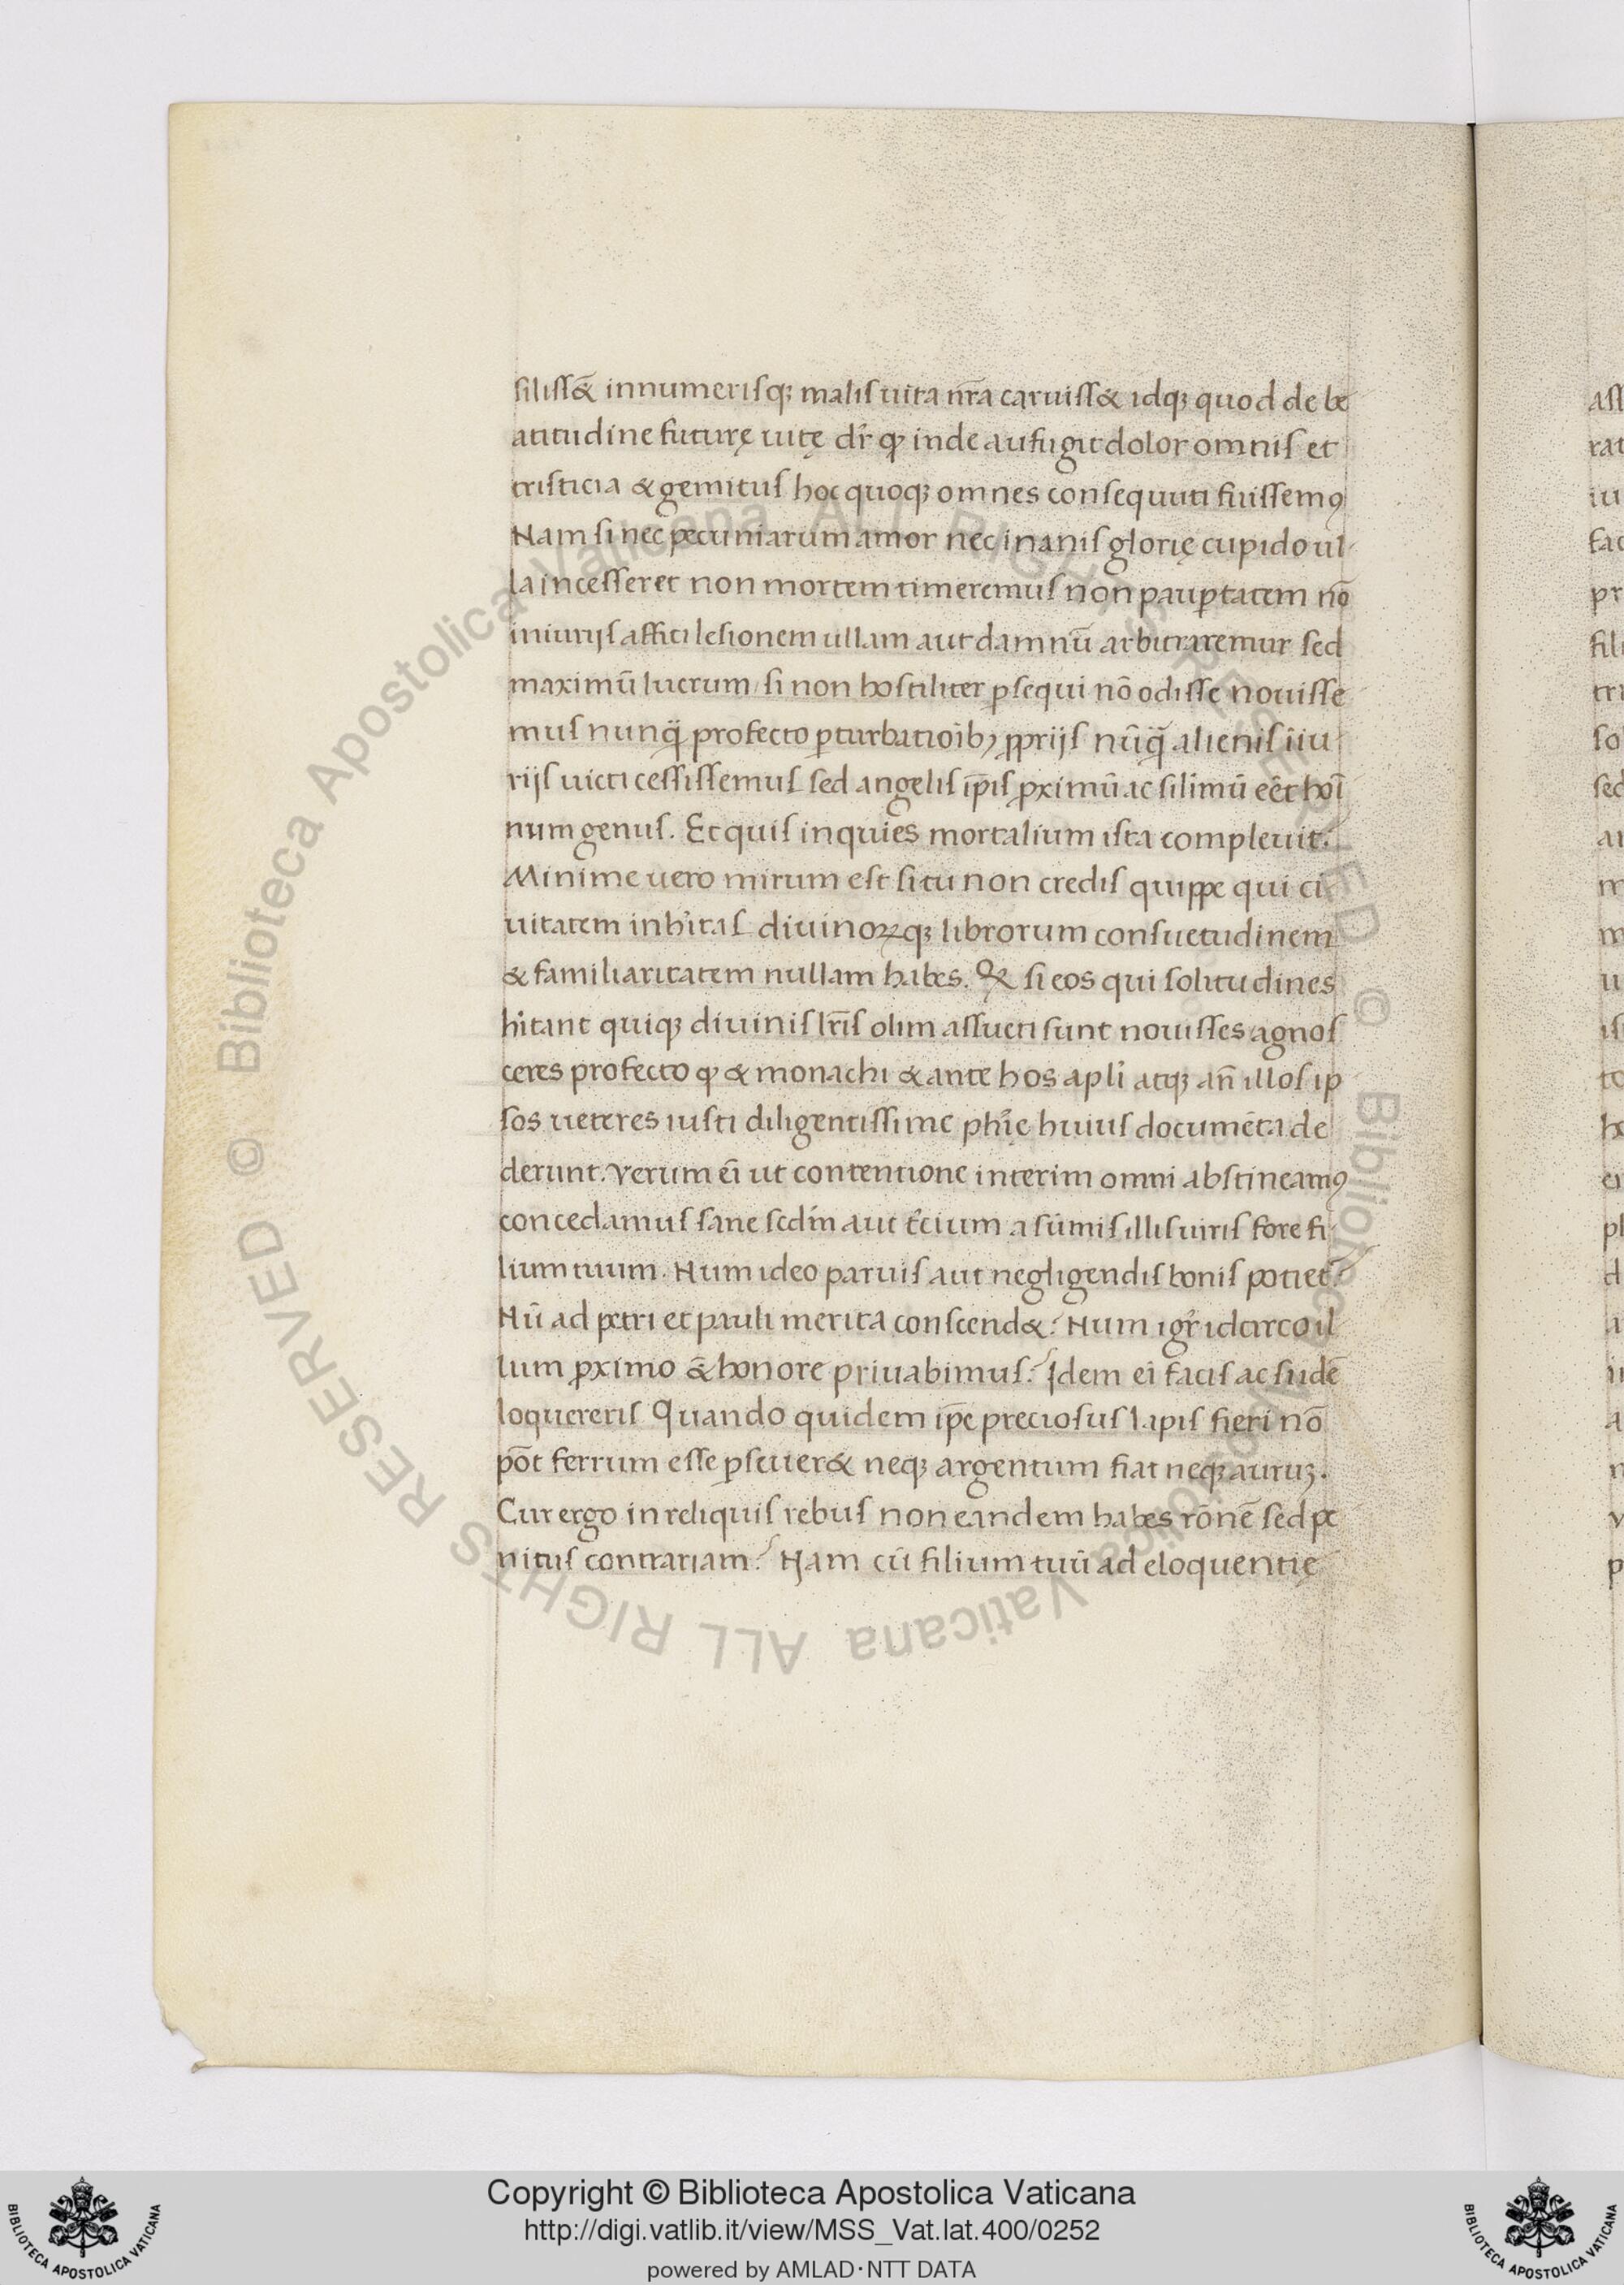 siliss&̄ innumerisq; malis uita nr̄a caruiss& idq; quod de be
atitudine futurę uitę dr̄ ꝙ inde aufugit dolor omnis et
tristicia & gemitus hoc quoq; omnes consequuti fuissemꝯ
Nam si nec pecuniarum amor nec inanis glorię cupido ul-
la incesseret non mortem timeremus non paup̱tatem nō
iniurijs affici lesionem ullam aut damnū arbitraremur sed
maximū lucrum / si non hostiliter ꝑsequi nō odisse nouisse
mus nunq̄ profecto ꝑturbatiōib; ꝓprijs nūq̄ alienis īiu
rijs uicti cessissemus sed angelis ip̄is ꝓximū ac sil̄imū eēt hoī
num genus. Et quis inquies mortalium ista compleuit?
Minime uero mirum est si tu non credis quippe qui ci
uitatem inh̄itas diuinoꝝq; librorum consuetudinem
& familiaritatem nullam habes. Ꝙ si eos qui solitudines
h̄itant quiq; diuinis lr̄is olim assueti sunt nouisses agnos
ceres profecto ꝙ & monachi & ante hos apl̄i atq; an̄ illos ip
sos ueteres iusti diligentissime ph̄ię huius documēta de
derunt. Verum eī ut contentione interim omni abstineamꝯ
concedamus sane scd̄m aut t̄cium a sūmis illis uiris fore fi
lium tuum. Num ideo paruis aut negligendis bonis potiet̄?
Nū ad petri et pauli merita conscend&? Num igr̄ idcirco il
lum ꝓximo &̄ honore priuabimus? Idem eī facis ac si idē
loquereris Quando quidem ip̄e preciosus lapis fieri nō
pōt ferrum esse ꝑseuer& neq; argentum fiat neq; auruꝫ.
Cur ergo in reliquis rebus non eandem habes rōnē sed pe
nitus contrariam? Nam cū filium tuū ad eloquentię
ass
rat
iu
fac
pr
fili
tri
so
sed
u
to
pl
d
in
a
v
p
© Biblioteca Apostolica Vaticana ALL RIGHTS RESERVED © Biblioteca Apostolica Vaticana ALL RIGHTS RESERVED
Copyright © Biblioteca Apostolica Vaticana
http://digi.vatlib.it/view/MSS_Vat.lat.400/0252
powered by AMLAD·NTT DATA
BIBLIOTECA APOSTOLICA VATICANA
BIBLIOTECA APOSTOLICA VATICANA